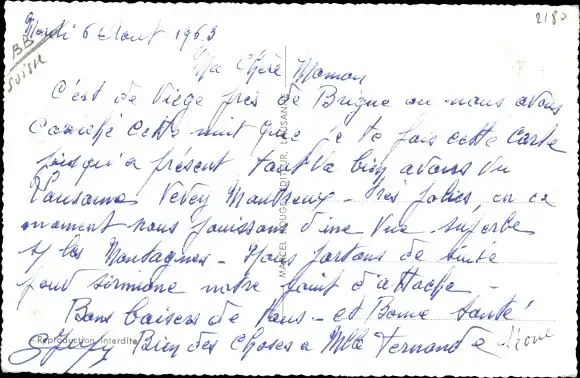 Mardi 6 Aout 1963
2180
BB
SUISSE
Ma Chère Maman
C'est de Viège près de Brigue ou nous avons
couché cette nuit que je te fais cette carte
jusqu'a présent tout va bien avons vu
Lausanne Vevey Montreux très jolies, en ce
moment nous jouissons d'une vue superbe
s/ les Montagnes - Nous partons de suite
pour Sirmione notre point d'attache -
Bons baisers de Nous - et Bonne Santé
Bien des Choses a Mlle Fernande
MARCEL ROUGE, EDITEUR, LAUSANNE
Reproduction interdite